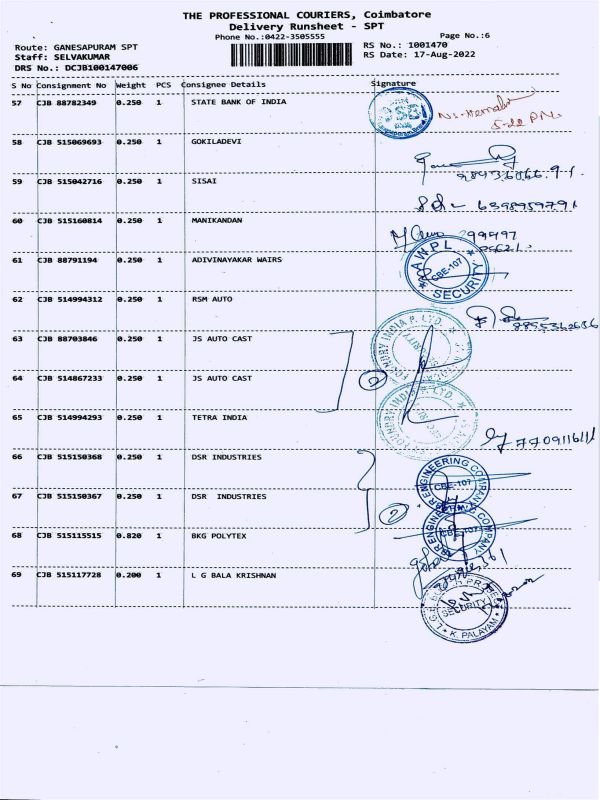 THE PROFESSIONAL COURIERS, Coimbatore
Delivery Runsheet - SPT
Phone No.:0422-3505555
Page No.:6
Route: GANESAPURAM SPT
RS No.: 1001470
Staff: SELVAKUMAR
RS Date: 17-Aug-2022
DRS No.: DCJB100147006
S No Consignment No Weight PCS Consignee Details Signature
57 CJB 88782349 0.250 1 STATE BANK OF INDIA
5-22 PM
58 CJB 515069693 0.250 1 GOKILADEVI
59 CJB 515042716 0.250 1 SISAI
6398959791
60 CJB 515160814 0.250 1 MANIKANDAN
61 CJB 88791194 0.250 1 ADIVINAYAKAR WAIRS
AWPL
CBE-107
SECURITY
62 CJB 514994312 0.250 1 RSM AUTO
63 CJB 88703846 0.250 1 JS AUTO CAST
FOUNDRY INDIA P. LTD.
64 CJB 514867233 0.250 1 JS AUTO CAST
2
FOUNDRY INDIA P. LTD.
65 CJB 514994293 0.250 1 TETRA INDIA
66 CJB 515150368 0.250 1 DSR INDUSTRIES
ENGINEERING COMPANY
CBE-107
67 CJB 515150367 0.250 1 DSR INDUSTRIES
2
68 CJB 515115515 0.820 1 BKG POLYTEX
ENGINEERING COMPANY
CBE-107
69 CJB 515117728 0.200 1 L G BALA KRISHNAN
SECURITY
K. PALAYAM